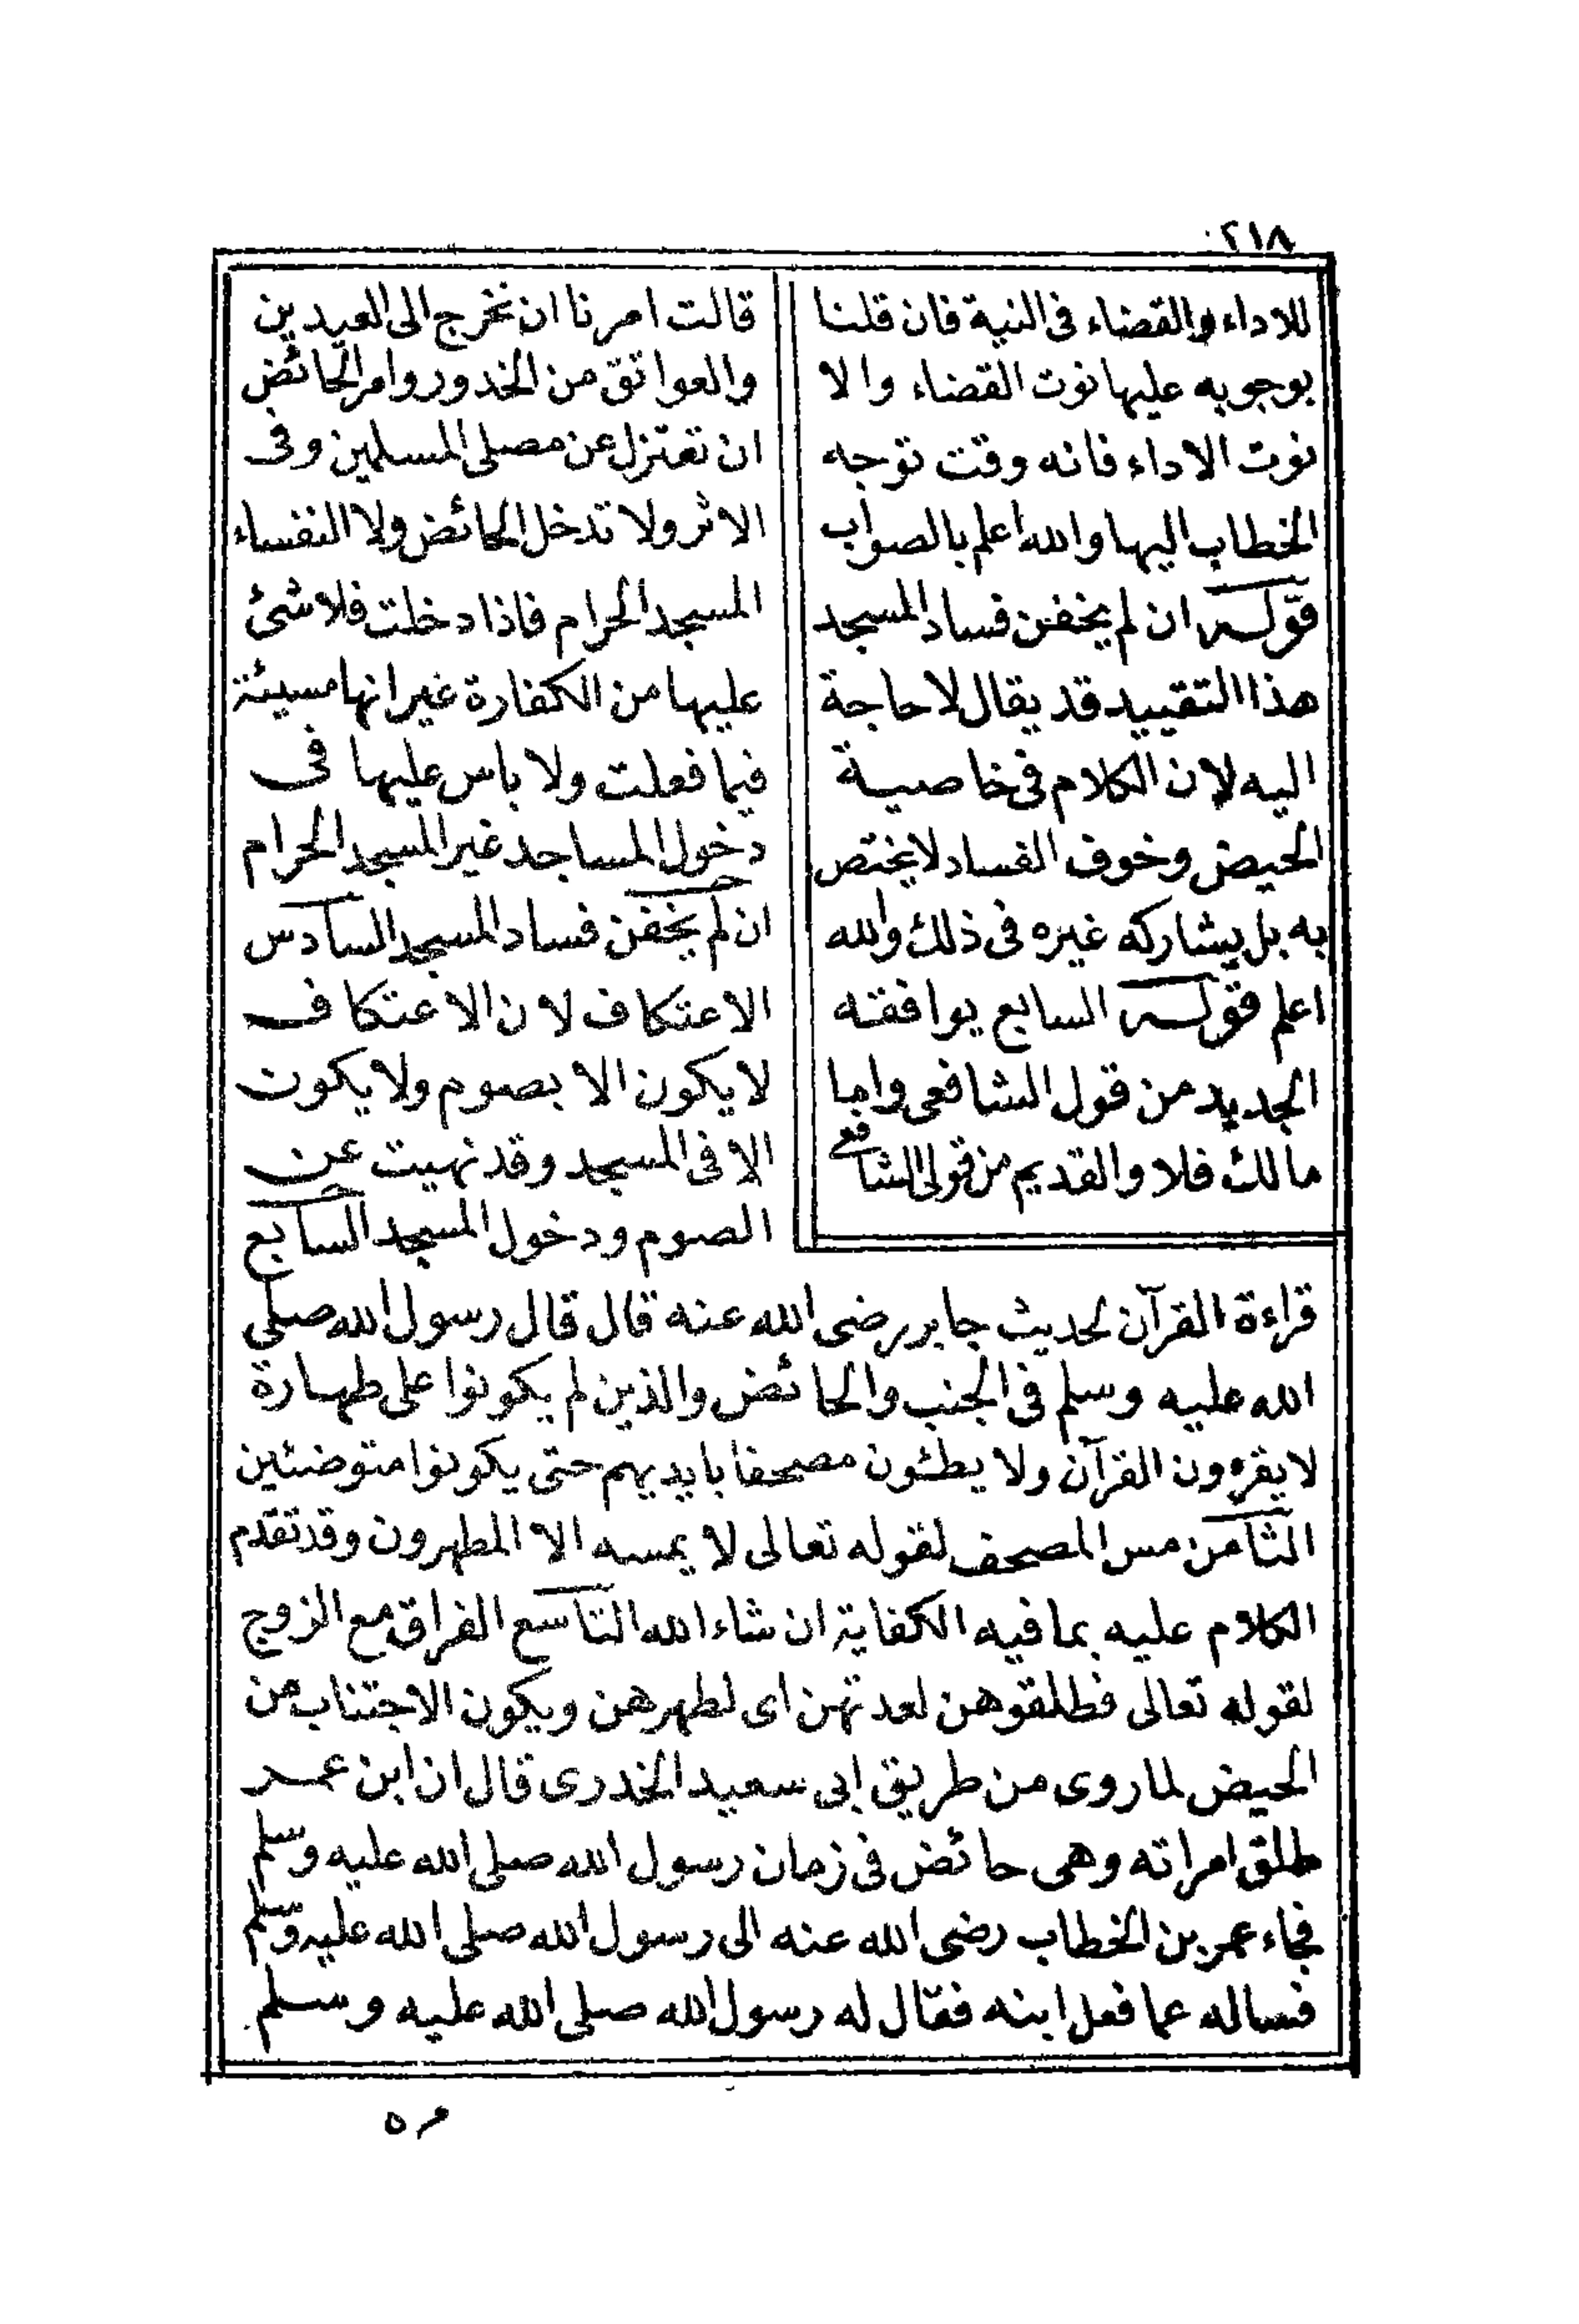 ٢١٨
للاداء والقضاء فى النية فان قلنا
بوجوبه عليها نوت القضاء والا
نوت الاداء فانه وقت توجه
الخطاب اليها والله اعلم بالصواب
قوله ان لم يخفن فساد المسجد
هذا التقييد قد يقال لا حاجة
اليه لان الكلام فى خاصية
الحيض وخوف الفساد لا يختص
به بل يشاركه غيره فى ذلك والله
اعلم قوله السابع يوافقه
الجديد من قول الشافعى واما
مالك فلا والقديم من قولى الشافعى
قالت امرنا ان نخرج الى العيدين
والعواتق من الخدور وامر الحائض
ان تعتزل عن مصلى المسلمين وفى
الاثر ولا تدخل الحائض ولا النفساء
المسجد الحرام فاذا دخلت فلا شئ
عليها من الكفارة غير انها مسيئة
فيما فعلت ولا باس عليها فى
دخول المساجد غير المسجد الحرام
ان لم يخفن فساد المسجد السادس
الاعتكاف لان الاعتكاف
لا يكون الا بصوم ولا يكون
الا فى المسجد وقد نهيت عن
الصوم ودخول المسجد السابع
قراءة القرآن لحديث جابر رضى الله عنه قال قال رسول الله صلى
الله عليه وسلم فى الجنب والحائض والذين لم يكونوا على طهارة
لا يقرءون القرآن ولا يطئون مصحفا بايديهم حتى يكونوا متوضئين
الثامن مس المصحف لقوله تعالى لا يمسه الا المطهرون وقد تقدم
الكلام عليه بما فيه الكفاية ان شاء الله التاسع الفراق مع الزوج
لقوله تعالى فطلقوهن لعدتهن اى لطهرهن ويكون الاجتناب من
الحيض لما روى من طريق ابى سعيد الخدرى قال ان ابن عمر
طلق امراته وهى حائض فى زمان رسول الله صلى الله عليه وسلم
فجاء عمر بن الخطاب رضى الله عنه الى رسول الله صلى الله عليه وسلم
فساله عما فعل ابنه فقال له رسول الله صلى الله عليه وسلم